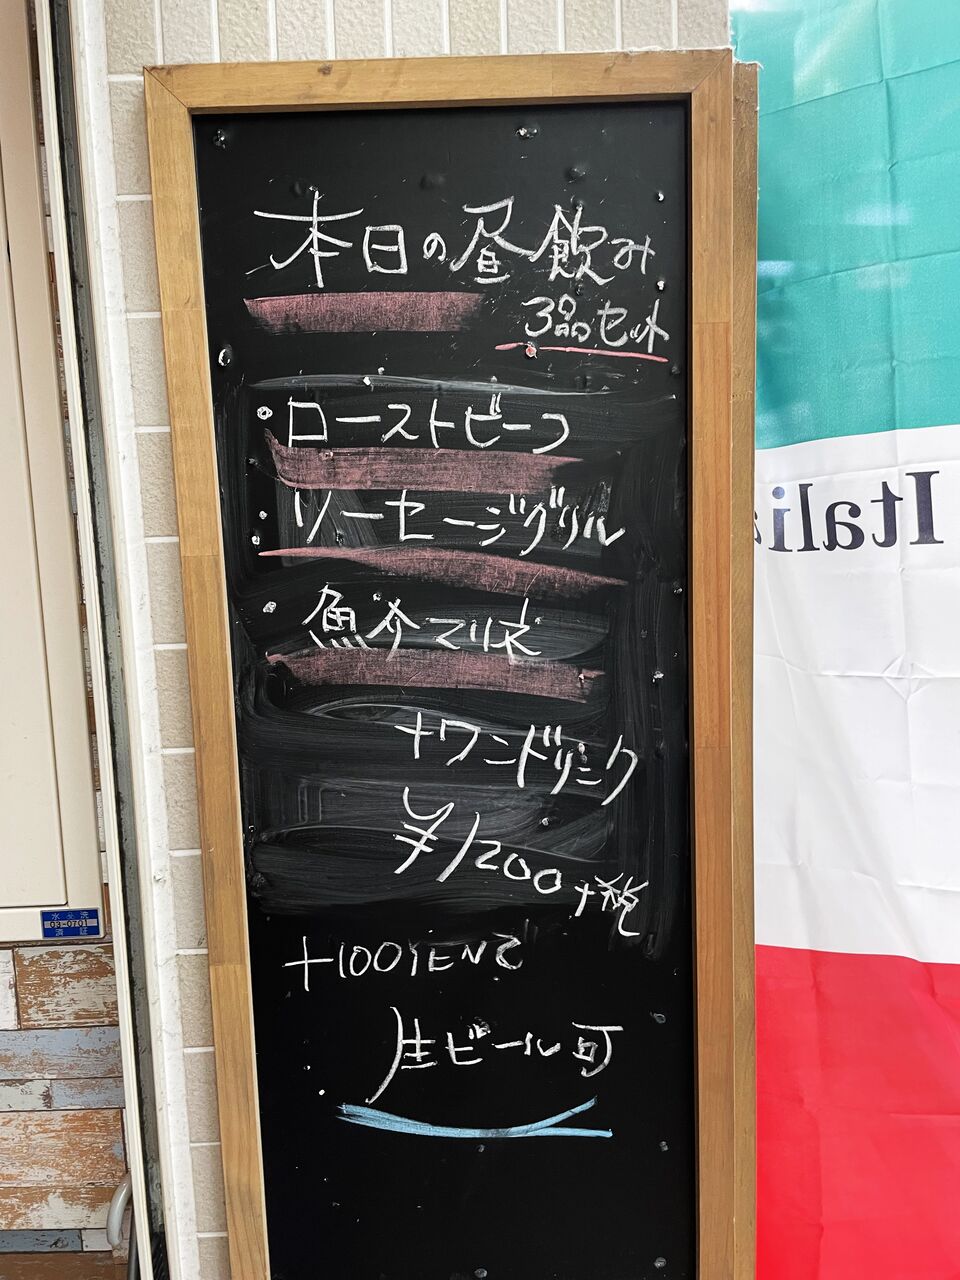 本日の昼飲み
3品セット
ローストビーフ
ソーセージグリル
魚介マリネ
+ワンドリンク
¥1200+税
+100YENで
生ビール可
Itali
水 洗
03-0701